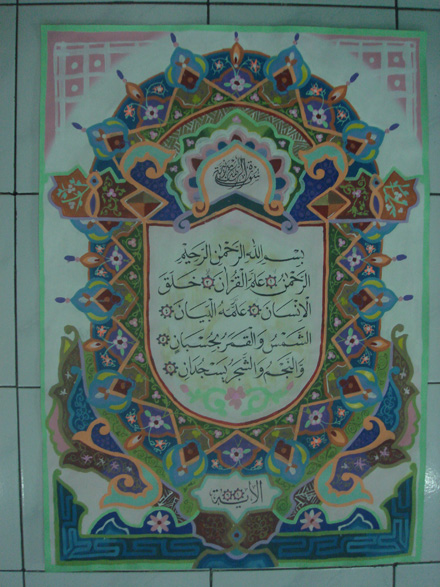 سورة الرحمن
بِسْمِ اللهِ الرَّحْمٰنِ الرَّحِيْمِ
اَلرَّحْمٰنُ ۞ عَلَّمَ الْقُرْاٰنَ ۞ خَلَقَ
الْاِنْسَانَ ۞ عَلَّمَهُ الْبَيَانَ ۞
اَلشَّمْسُ وَالْقَمَرُ بِحُسْبَانٍ ۞
وَالنَّجْمُ وَالشَّجَرُ يَسْجُدَانِ ۞
الاية